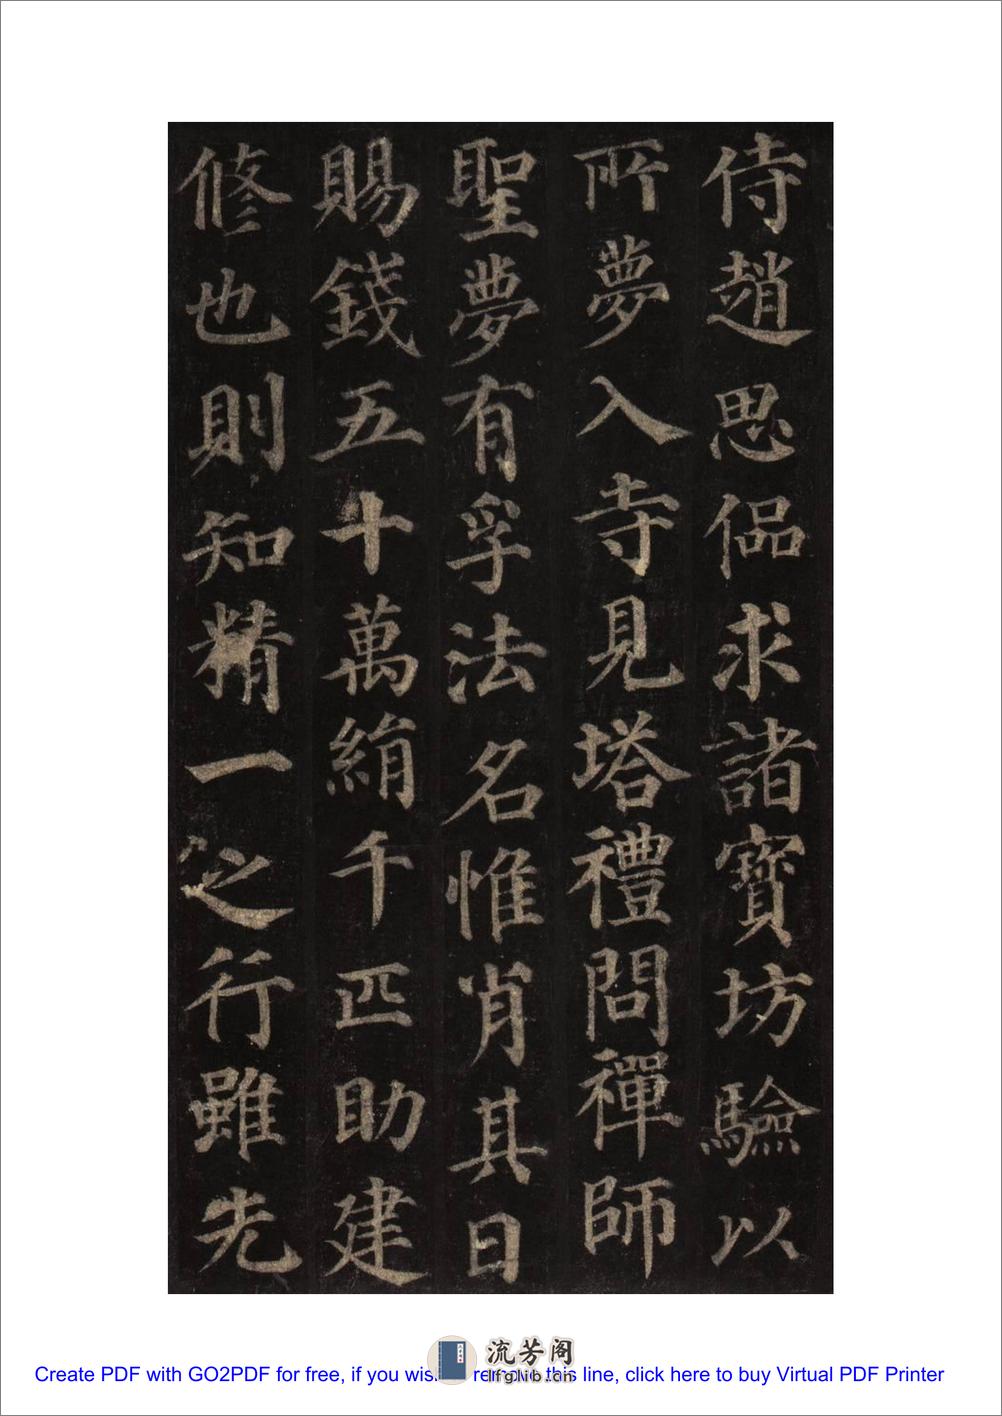 侍趙思偘求諸寶坊驗以
所夢入寺見塔禮問禪師
聖夢有孚法名惟肖其日
賜錢五十萬絹千匹助建
修也則知精一之行雖先
流芳阁
lfglib.cn
Create PDF with GO2PDF for free, if you wish to remove this line, click here to buy Virtual PDF Printer